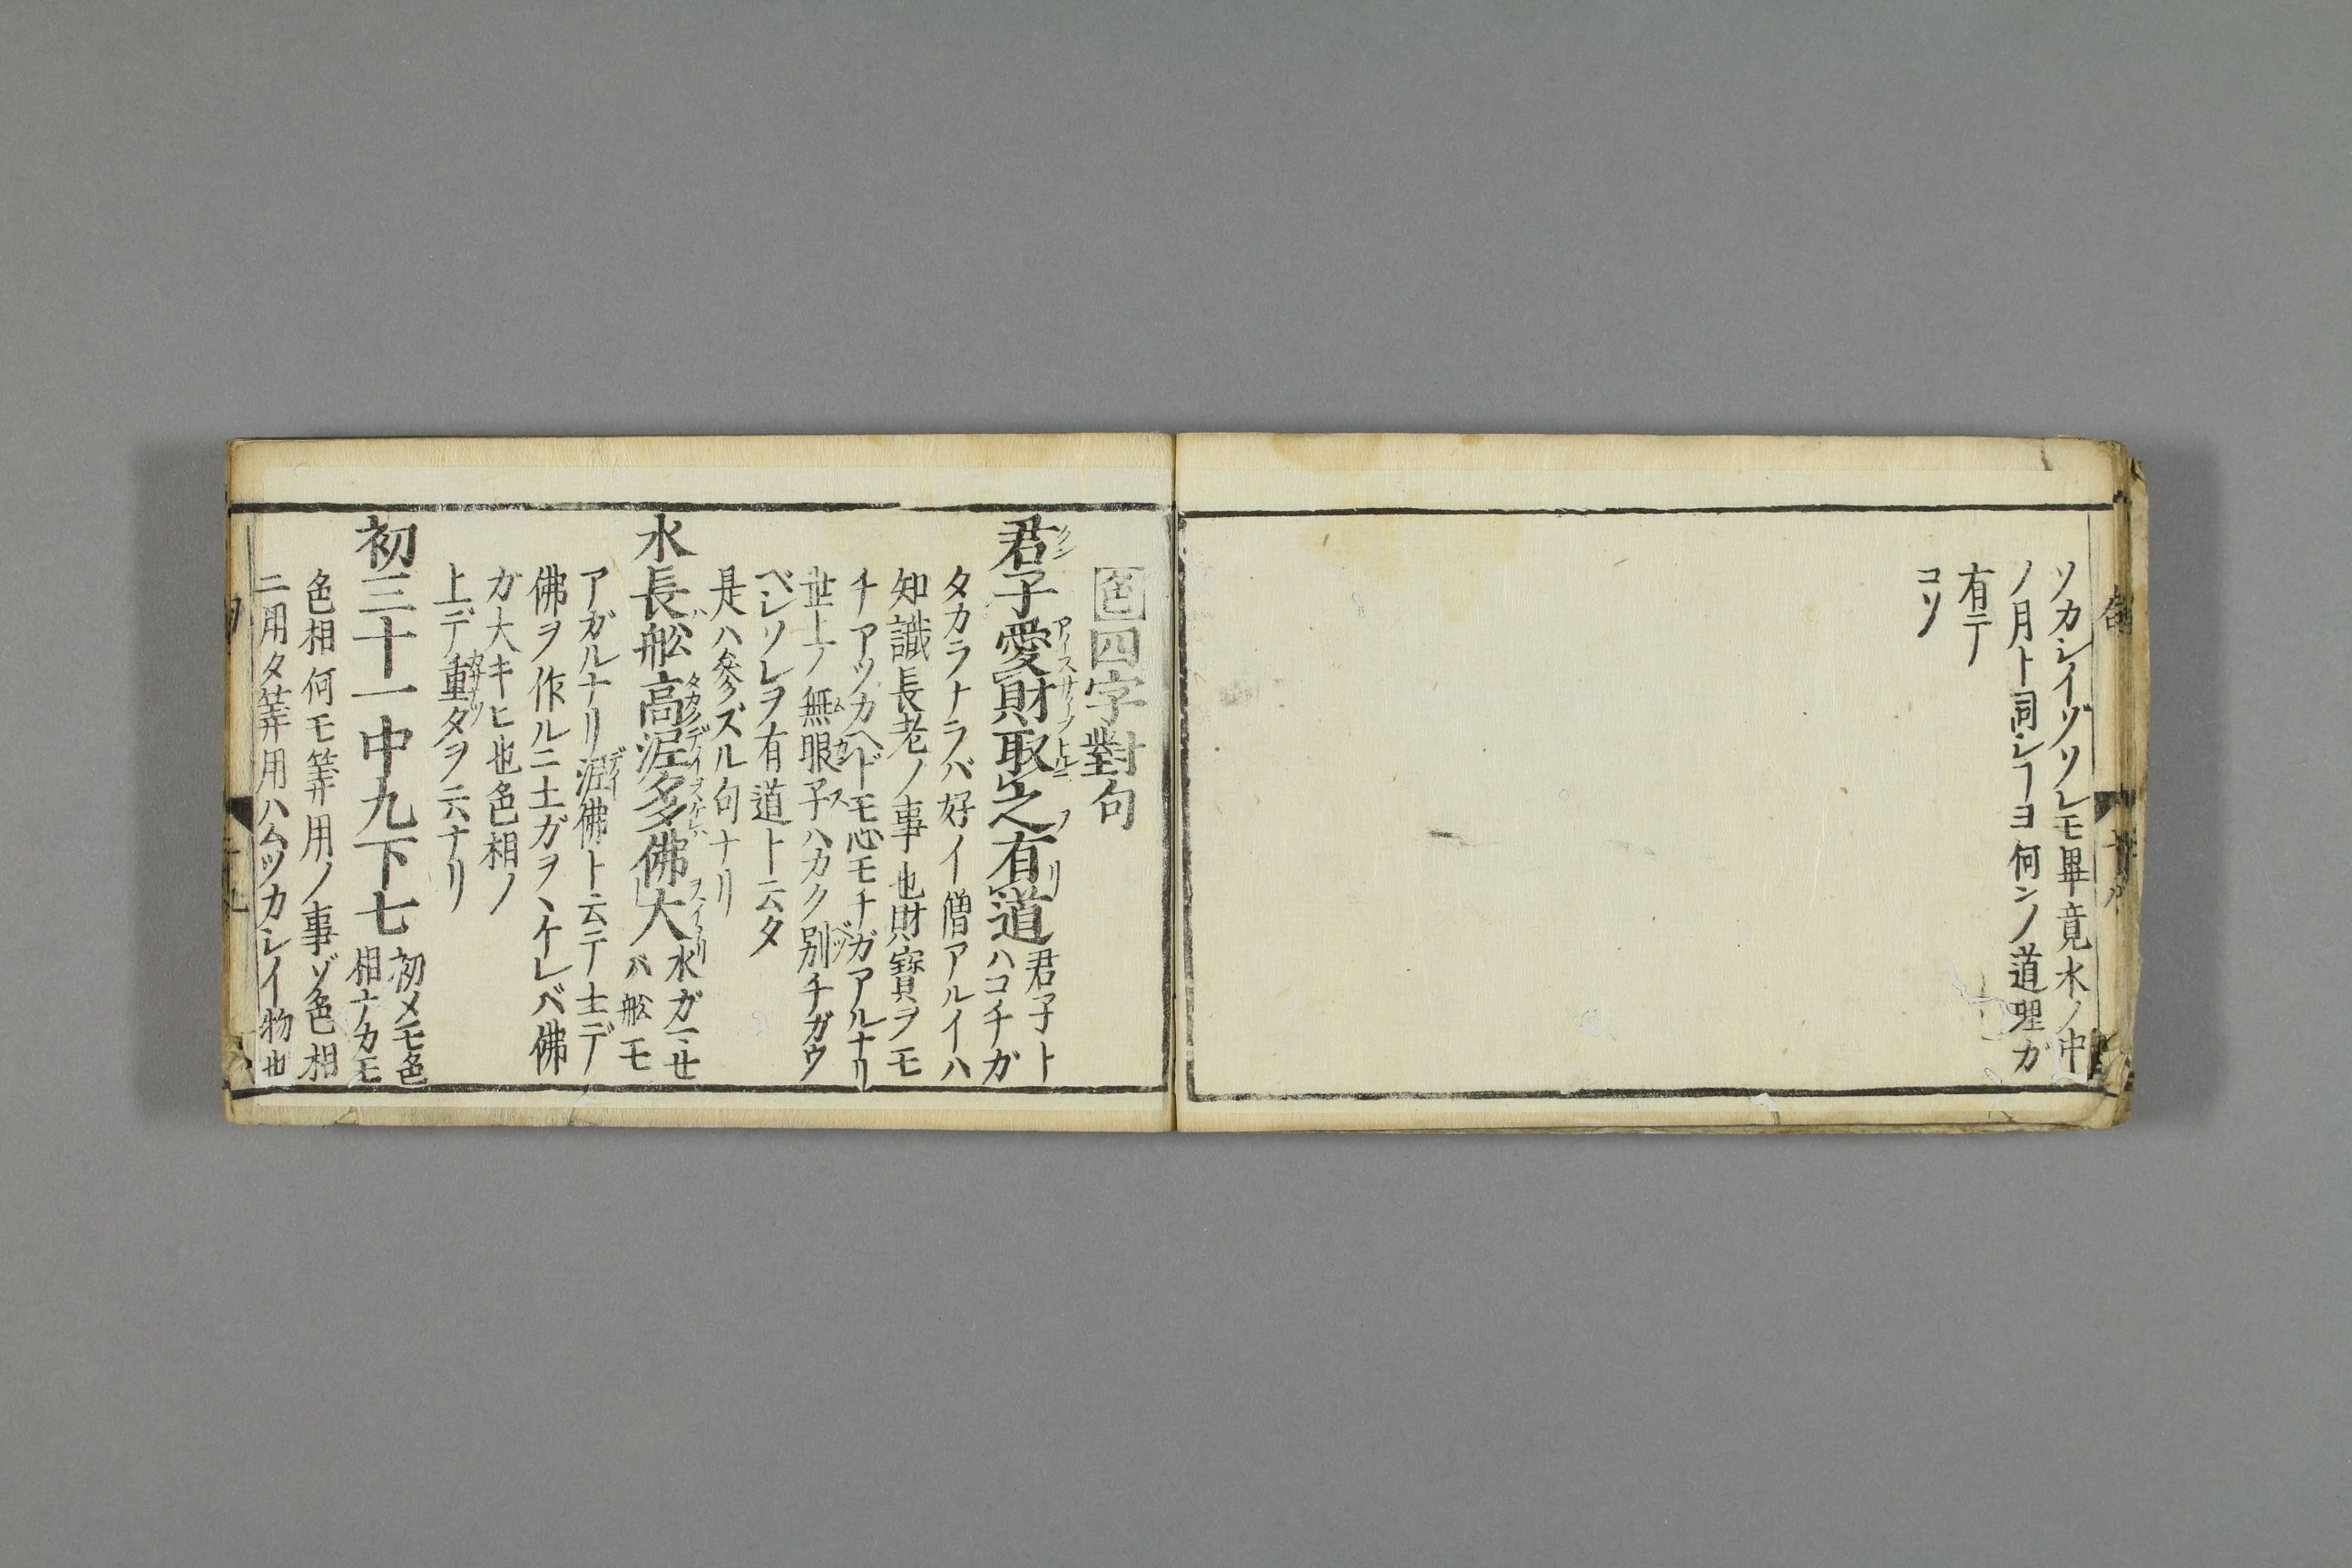 ソカシイゾソレモ畢竟水ノ中
ノ月ト詞シーヨ何ンノ道理ガ
有テ
コソ
色四字對句
君子愛財取之有道
君子ト
ハコチガ
タカラナラバ好イ僧アルイハ
知識長老ノ事也財寳ヲモ
チアツカヘドモ心モチガアルナリ
世上ノ無眼子ハカク別チガウ
ベシソレヲ有道ト云タ
是ハ參ズル句ナリ
水長舩高泥多佛大
水ガマセ
バ舩モ
アガルナリ泥佛ト云テ土デ
佛ヲ作ルニ土ガヲヽケレバ佛
ガ大キヒ也色相ノ
上デ重タヲ云ナリ
初三十一中九下七
初メモ色
相ナカモ
色相何モ筭用ノ事ゾ色相
ニ用タ筭用ハムツカシイ物也